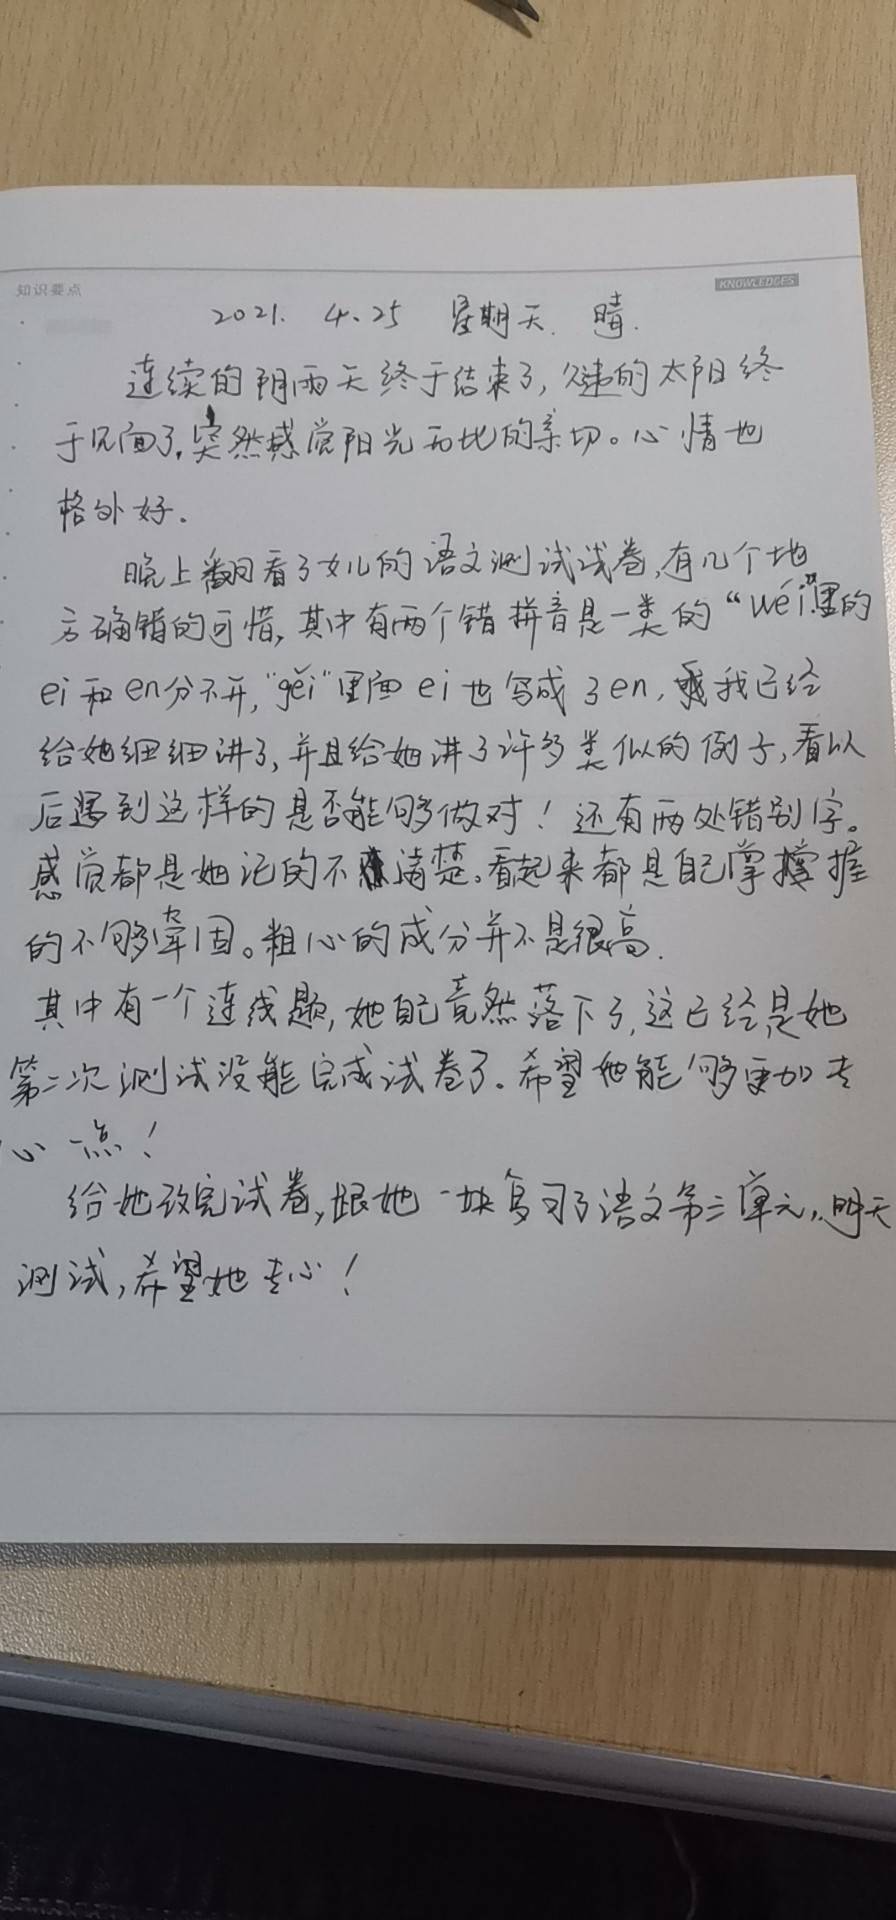 知识要点
KNOWLEDGES
2021. 4.25 星期天. 晴.
连续的阴雨天终于结束了,久违的太阳终
于见面了,突然感觉阳光无比的亲切。心情也
格外好.
晚上翻看了女儿的语文测试试卷,有几个地
方确错的可惜,其中有两个错拼音是一类的“wéi”里的
ei和en分不开,“gěi”里面ei也写成了en,我已经
给她细细讲了,并且给她讲了许多类似的例子,看以
后遇到这样的是否能够做对!还有两处错别字。
感觉都是她记的不清楚。看起来都是自己掌握
的不够牢固。粗心的成分并不是很高.
其中有一个连线题,她自己竟然落下了,这已经是她
第二次测试没能完成试卷了.希望她能够更加专
心一点!
给她改完试卷,跟她一块复习了语文第三单元,明天
测试,希望她专心!